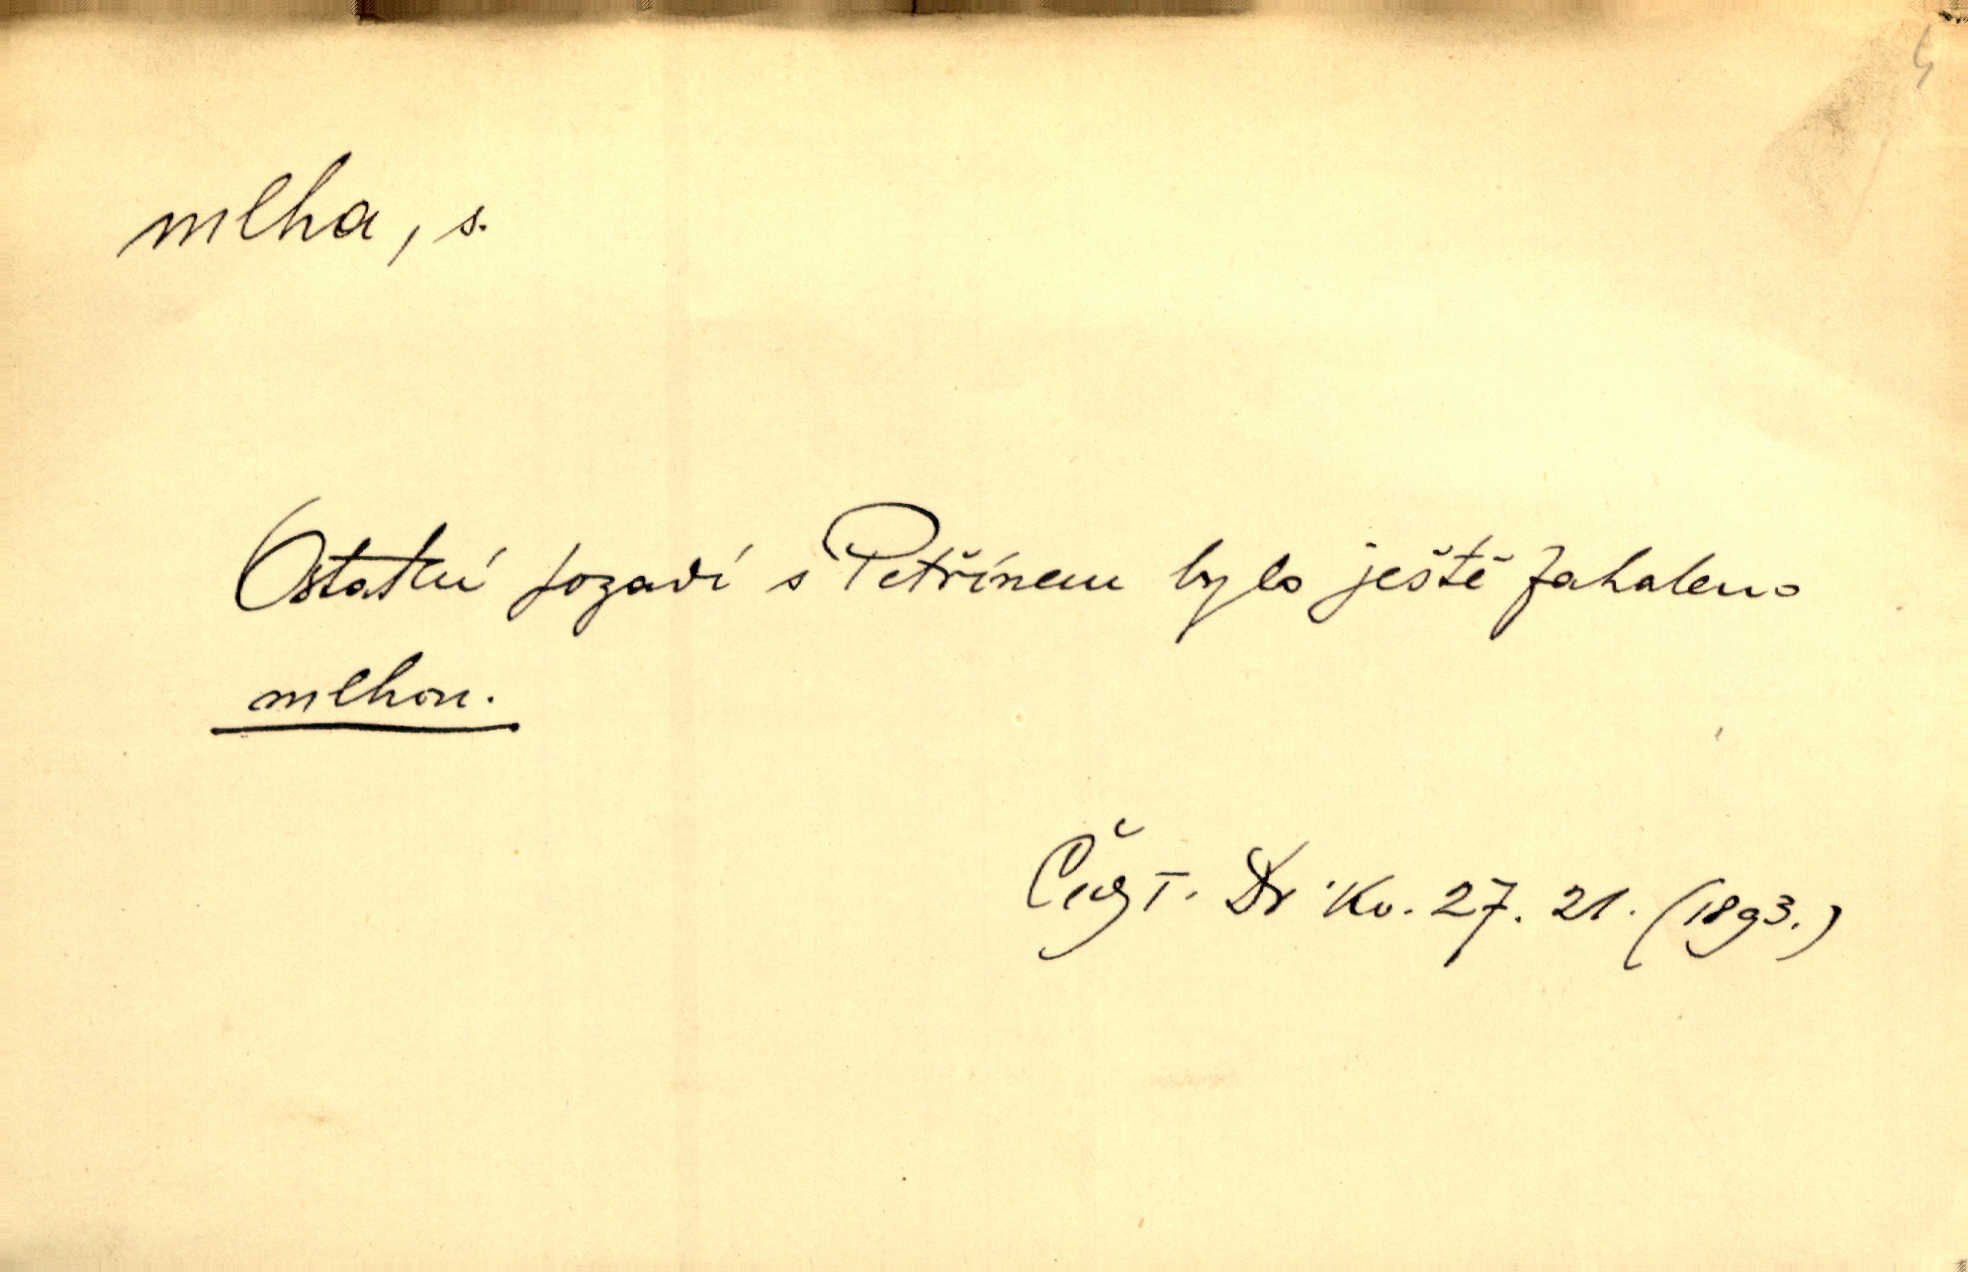 mlha, s.
Ostatní pozadí s Petřínem bylo ještě zahaleno
mlhou.
Dr Kv. 27. 21. (1893.)